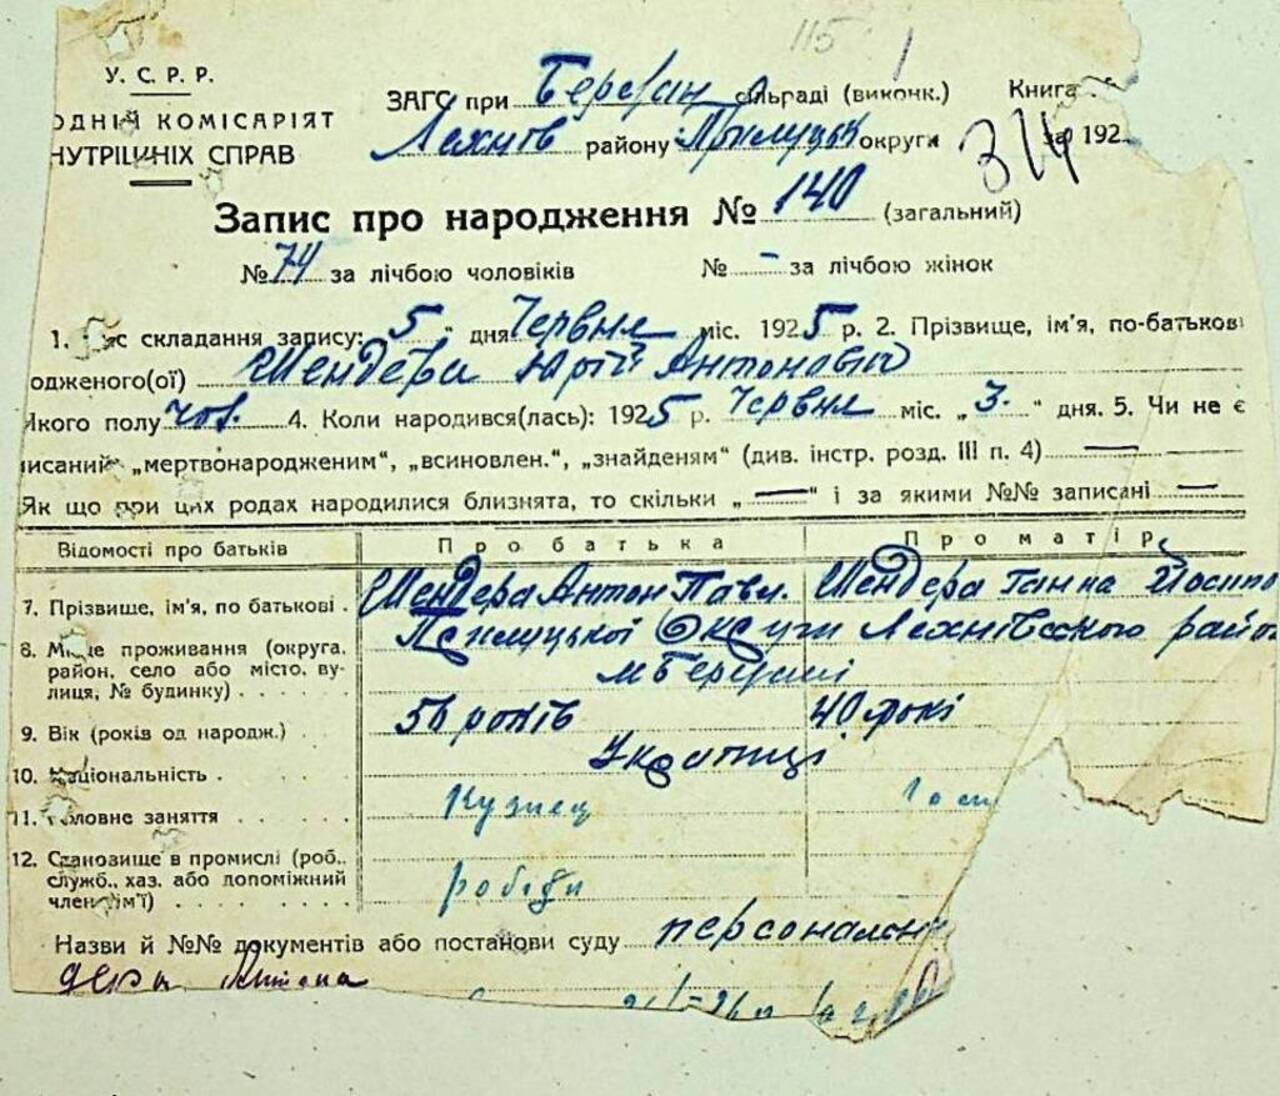 115
У. С. Р. Р.
ОДНІЙ КОМІСАРІЯТ
НУТРІШНІХ СПРАВ
ЗАГС при сільраді (виконк.) Книга
Лехнів району Прилуцьк округи 314 за 192
Запис про народження № 140 (загальний)
№ 74 за лічбою чоловіків № - за лічбою жінок
1. Час складання запису: 5 " дня Червня міс. 1925 р. 2. Прізвище, ім'я, по-батькові
одженого(ої) Шендера Юрій Антоновій
Якого полу чол. 4. Коли народився(лась): 1925 р. Червня міс. „ 3. " дня. 5. Чи не є
писаний „мертвонародженим", „всиновлен.", „знайденям" (див. інстр. розд. III п. 4) —
Як що при цих родах народилися близнята, то скільки „ — " і за якими №№ записані —
Відомості про батьків Про батька Про матір
7. Прізвище, ім'я, по батькові . Шендера Антон Павл. Шендера Ганна Йосипо
8. Місце проживання (округа, Прилуцької Округи Лехнівського райо
район, село або місто, ву-
лиця, № будинку) . . . . .
9. Вік (років од народж.) . 56 років 40 рокі
10. Національність . Українці
11. Головне заняття . . . . . Кузнец
12. Становище в промислі (роб.,
служб., хаз. або допоміжний
член сім'ї) . . . . . .
Назви й №№ документів або постанови суду персональн
дера Антона